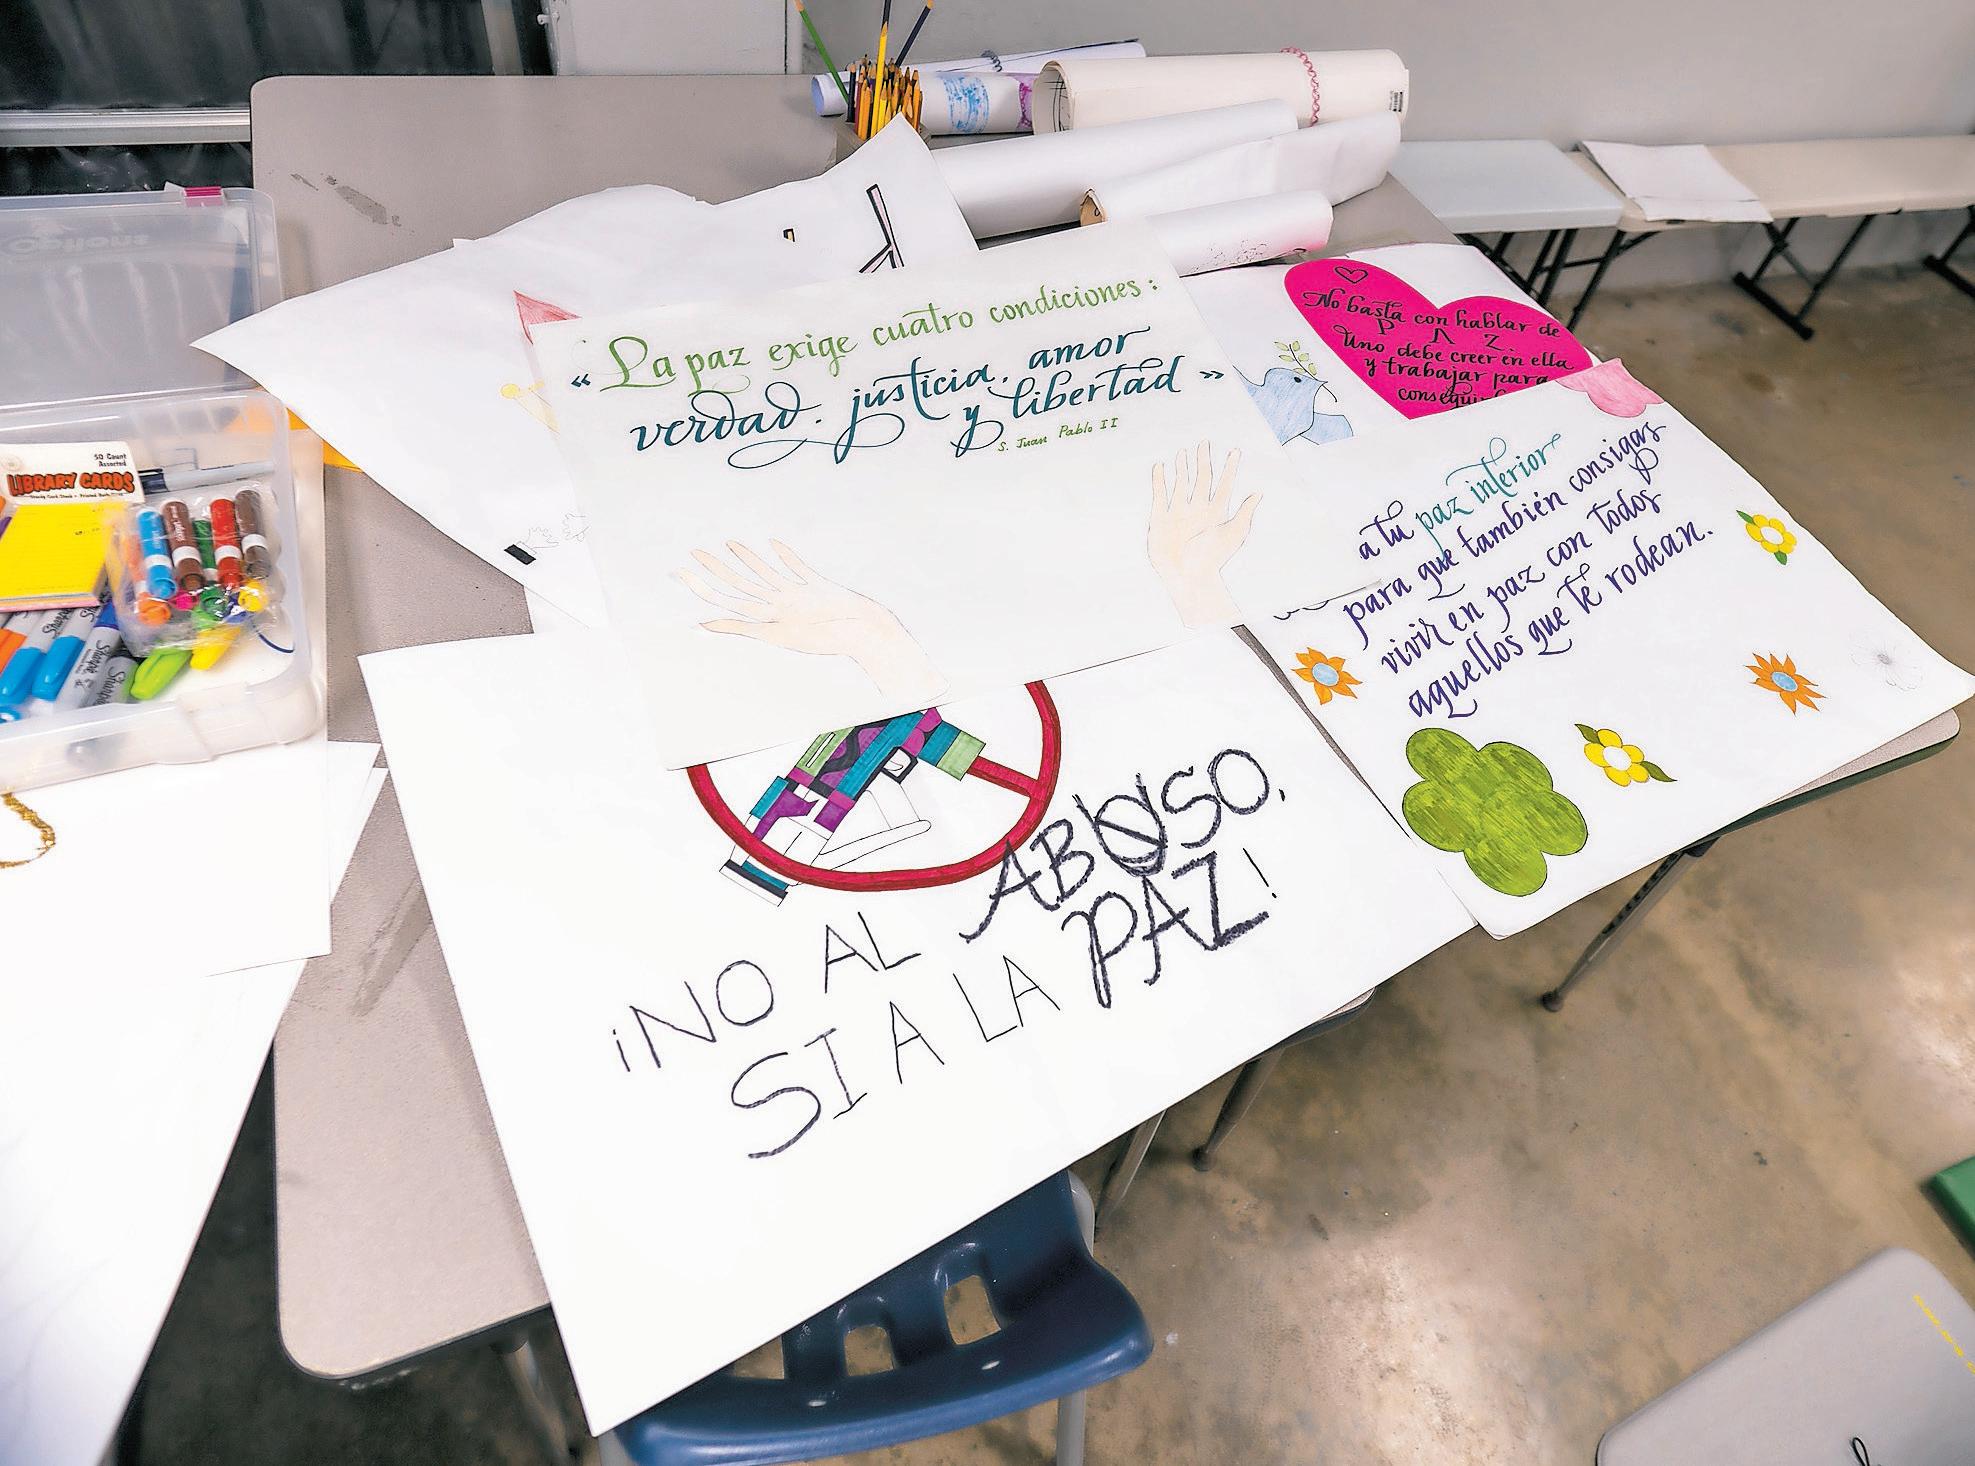 « La paz exige cuatro condiciones:
verdad. justicia. amor
y libertad »
S. Juan Pablo II
No basta con hablar de
P A Z.
Uno debe creer en ella
y trabajar para
a tu paz interior
para que también consigas
vivir en paz con todos
aquellos que te rodean.
¡NO AL ABUSO,
SI A LA PAZ!
50 Count
Assorted
LIBRARY CARDS
Sharpie
Sharpie
Options